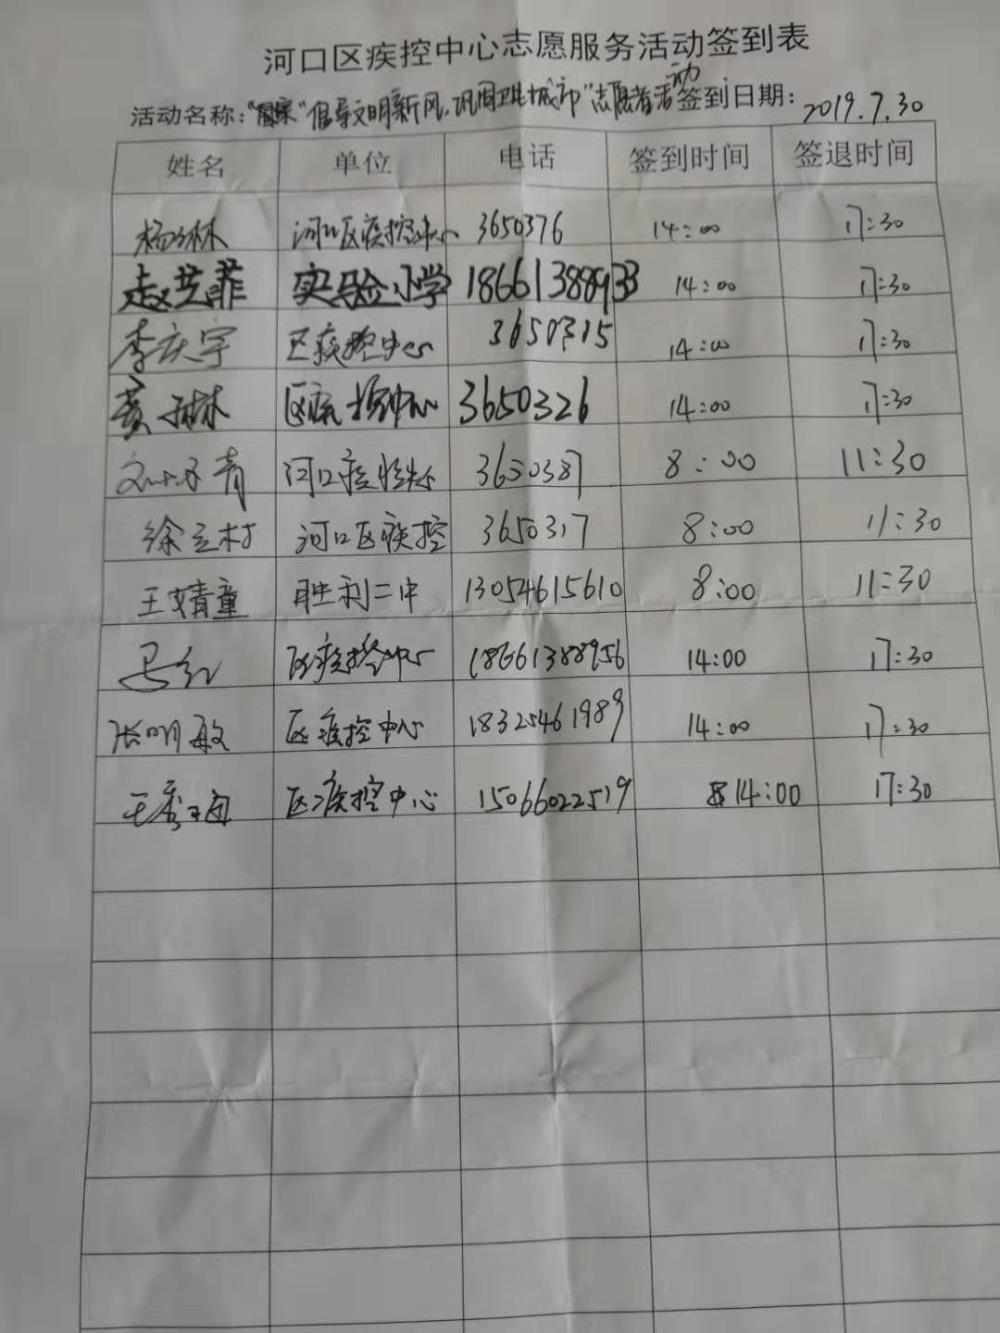 河口区疾控中心志愿服务活动签到表
活动名称:"倡导文明新风、巩固卫生城市"志愿者活动 签到日期: 2019.7.30
姓名 单位 电话 签到时间 签退时间
河口区疾控中心 3650376 14:00 17:30
赵芸菲 实验小学 18661388933 14:00 17:30
李庆宇 区疾控中心 3650315 14:00 17:30
黄 林 区疾控中心 3650326 14:00 17:30
青 河口疾控中心 3650387 8:00 11:30
徐立村 河口区疾控 3650317 8:00 11:30
王婧童 胜利二中 13054615610 8:00 11:30
马红 区疾控中心 18661388956 14:00 17:30
张明敏 区疾控中心 18325461989 14:00 17:30
王秀 区疾控中心 15066022519 14:00 17:30